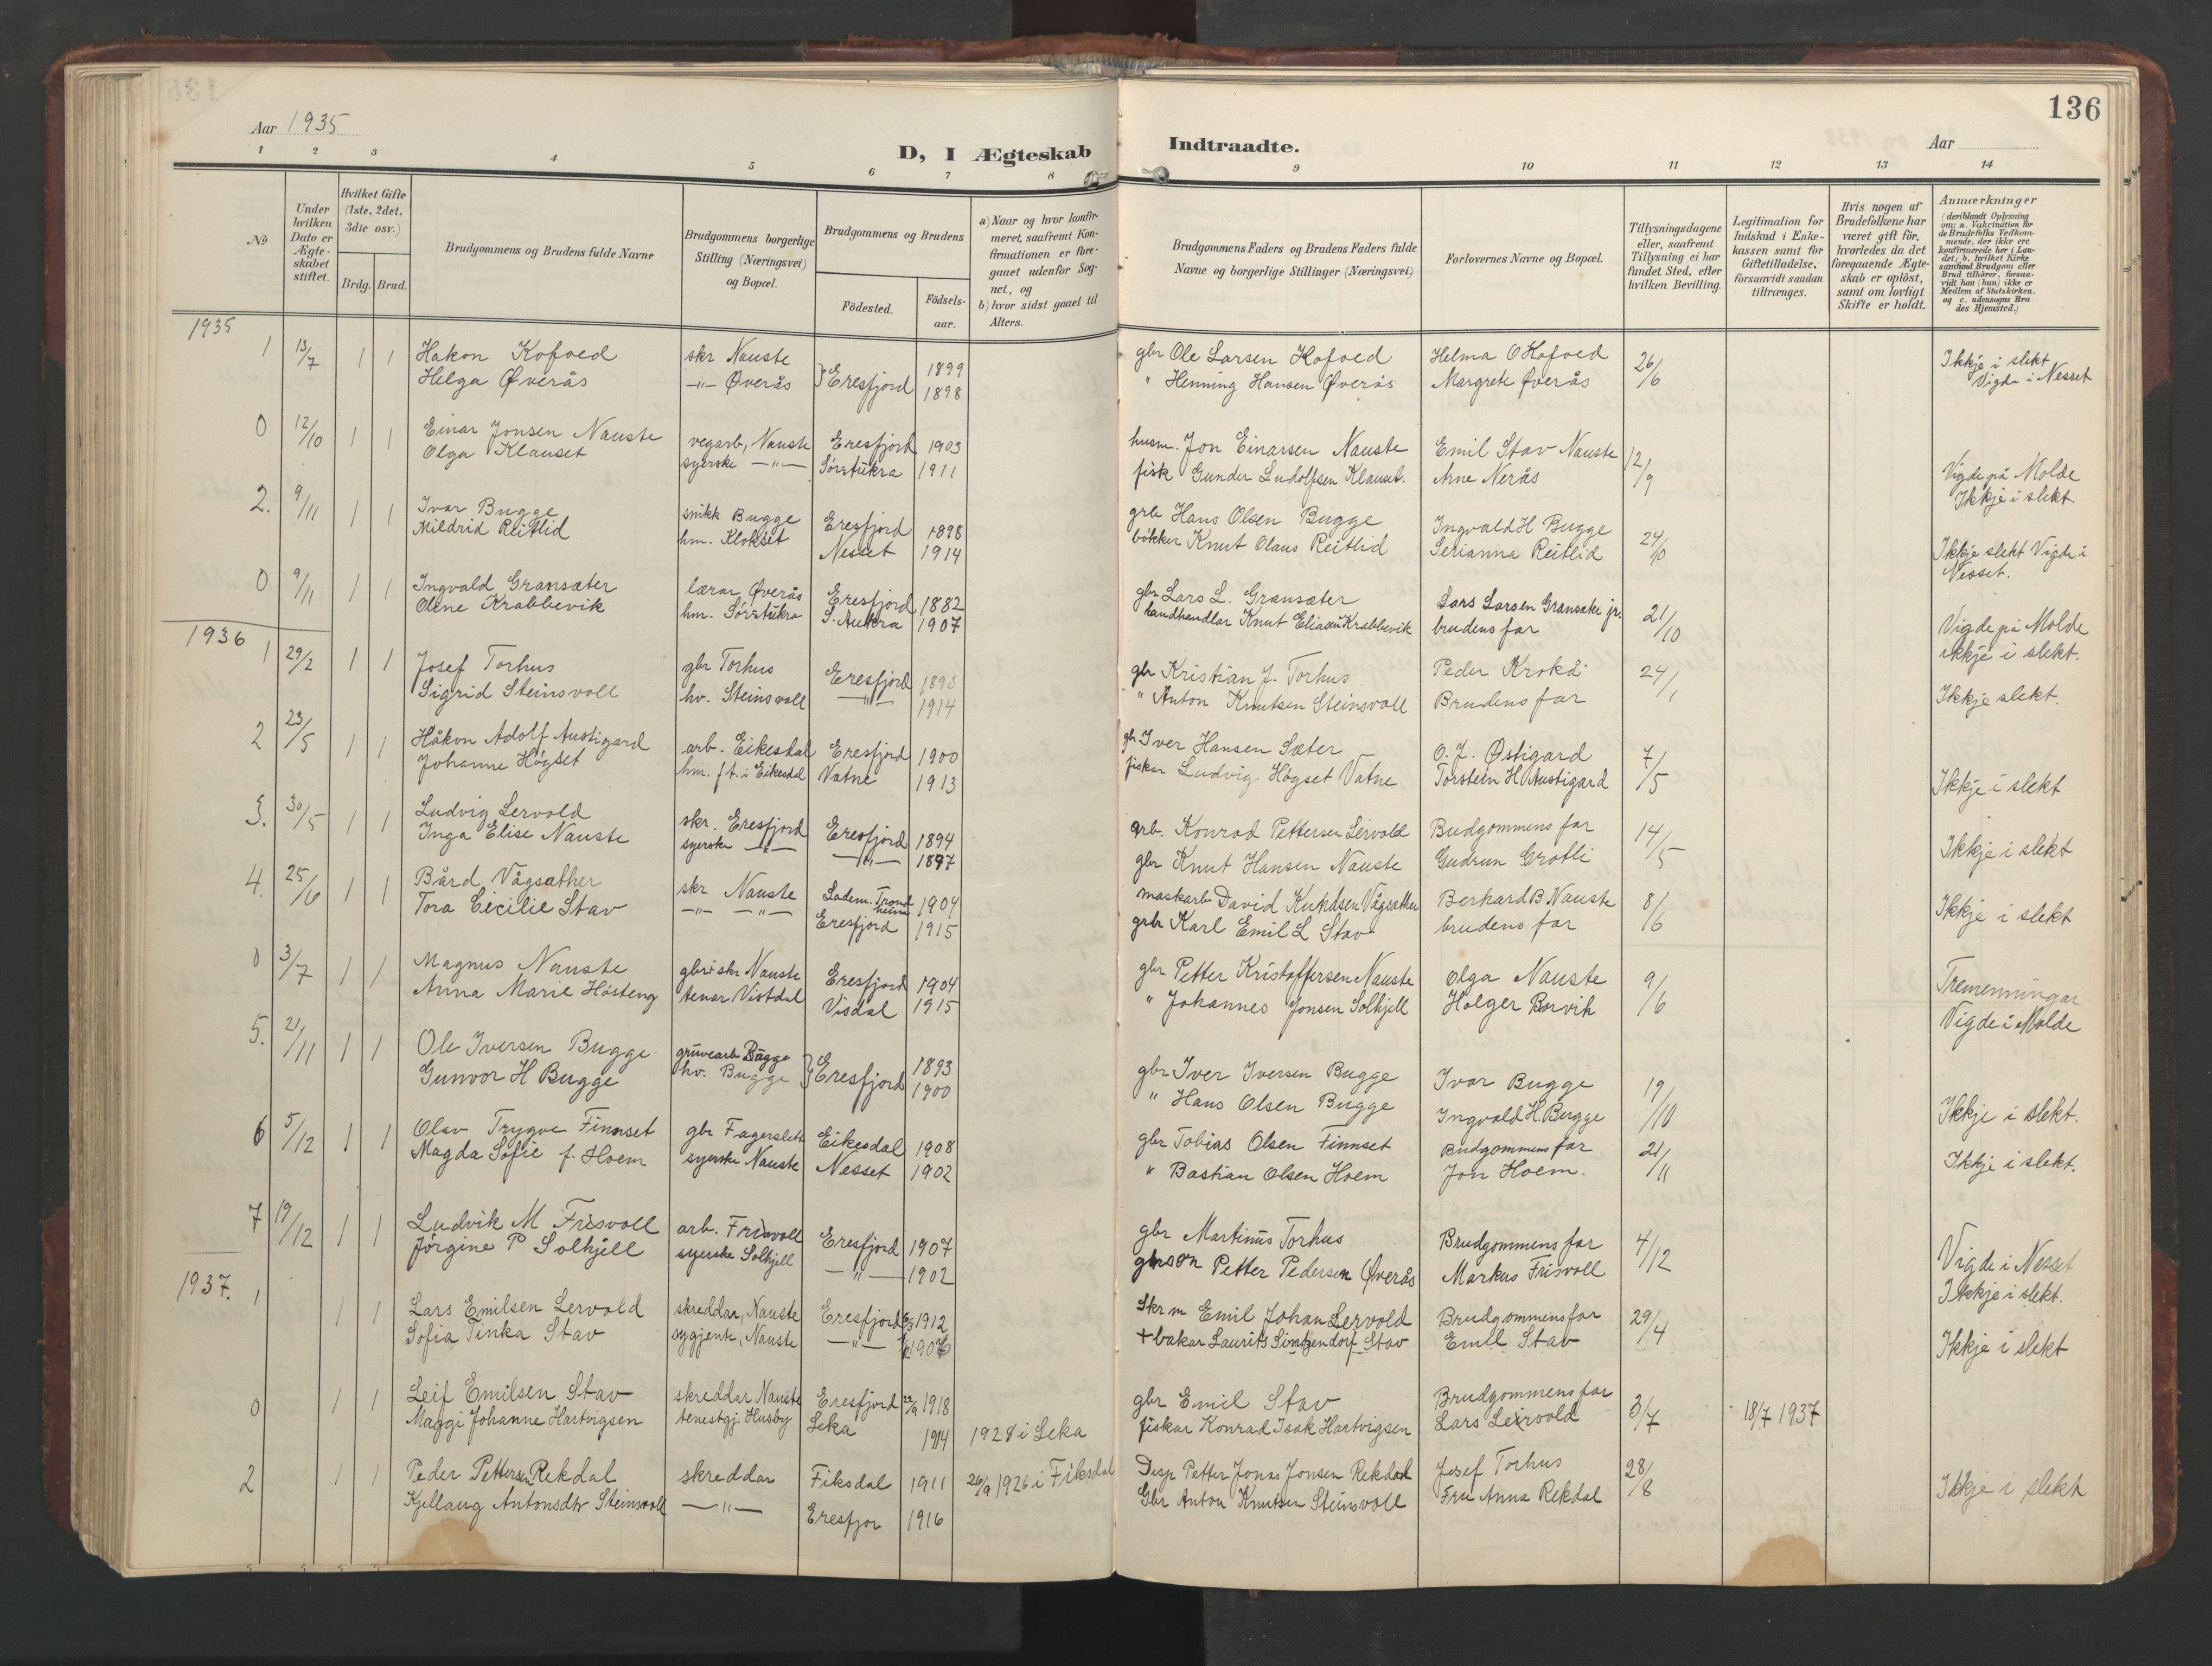 136
Aar 1935
D, I Ægteskab Indtraadte.
Aar
1 2 3 4 5 6 7 8 9 10 11 12 13 14
No
Under hvilken Dato er Ægteskabet stiftet.
Hvilket Gifte (1ste, 2det, 3die osv.)
Brdg. Brud.
Brudgommens og Brudens fulde Navne
Brudgommens borgerlige Stilling (Næringsvei) og Bopæl.
Brudgommens og Brudens
Födested.
Födselsaar.
a) Naar og hvor konfirmeret, saafremt Konfirmationen er foregaaet udenfor Sognet, og
b) hvor sidst gaaet til Alters.
Brudgommens Faders og Brudens Faders fulde Navne og borgerlige Stillinger (Næringsvei)
Forlovernes Navne og Bopæl.
Tillysningsdagene eller, saafremt Tillysning ei har fundet Sted, efter hvilken Bevilling.
Legitimation for Indskud i Enkekassen samt for Giftetilladelse, forsaavidt saadan tiltrænges.
Hvis nogen af Brudefolkene har været gift för, hvorledes da det foregaaende Ægteskab er oplöst, samt om lovligt Skifte er holdt.
Anmærkninger
(deriblandt Oplysning om: a. Vakcination for de Brudefolks Vedkommende, der ikke ere konfirmerede her i Landet; b. hvilket Kirkesamfund Brudgom eller Brud tilhörer, forsaavidt han (hun) ikke er Medlem af Statskirken. og c. udensogns Brudes Hjemsted.)
1935
1 13/7 1 1 Hakon Kofoed skr Nauste } Eresfjord 1899 gbr Ole Larsen Kofoed Helma O Kofoed 26/6 Ikkje i slekt
Helga Øverås -"- Øverås 1898 " Henning Hansen Øverås Margrete Øverås Vigde i Nesset
0 12/10 1 1 Einar Jonsen Nauste vegarb, Nauste Eresfjord 1903 husm. Jon Einarsen Nauste Emil Stav Nauste 12/9 Vigde på Molde
Olga Klauset syerske -"- Søraukra 1911 fisk Gunder Ludolfsen Klauset. Arne Nerås Ikkje i slekt
2. 9/11 1 1 Ivar Bugge snikk Bugge Eresfjord 1898 grb Hans Olsen Bugge Ingvald H Bugge 24/10 Ikkje slekt Vigde i
Mildrid Reitlid hm. Klokset Nesset 1914 bökker Knut Olaus Reitlid Serianna Reitlid Nesset.
0 9/11 1 1 Ingvald Gransæter lærar Øverås Eresfjord 1882 gbr Lars L. Gransæter Lars Larsen Gransæter jr. 21/10 Vigde på Molde
Oline Krabbevik hm. Søraukra S. Aukra 1907 landhandlar Knut Eliasen Krabbevik brudens far ikkje i slekt.
1936
1 29/2 1 1 Josef Torhus gbr Torhus Eresfjord 1893 gbr Kristian J. Torhus Peder Krokå 24/1 Ikkje slekt.
Sigrid Steinsvoll hv. Steinsvoll -"- 1914 " Anton Knutsen Steinsvoll Brudens far
2 23/5 1 1 Håkon Adolf Austigard arb. Eikesdal Eresfjord 1900 gbr Iver Hansen Sæter O. J. Østigard 7/5 Ikkje i slekt
Johanne Høgset hm. f.t. i Eikesdal Vatne 1913 fiskar Ludvig Høgset Vatne Torstein H Austigard
3. 30/5 1 1 Ludvig Lervold skr. Eresfjord Eresfjord 1894 grb. Konrad Pettersen Leirvold Budgommens far 14/5 Ikkje i slekt
Inga Elise Nauste syerske -"- -"- 1897 gbr Knut Hansen Nauste Gudrun Grotli
4. 25/6 1 1 Bård Vågsæther skr Nauste Ladem. Trondheim 1904 maskarb David Knudsen Vågsæther Berhard B Nauste 8/6 Ikkje i slekt
Tora Cecilie Stav -"- -"- Eresfjord 1915 grbr Karl Emil L Stav brudens far
0 3/7 1 1 Magnus Nauste gbr i skr Nauste Eresfjord 1904 gbr Petter Kristoffersen Nauste Olga Nauste 9/6 Tremenningar
Anna Marie Hösteng tenar Vistdal Visdal 1915 " Johannes Jonsen Solhjell Holger Borvik Vigde i Molde
5. 21/11 1 1 Ole Iversen Bugge gruvearb Bugge } Eresfjord 1893 gbr Iver Iversen Bugge Ivar Bugge 19/10 Ikkje i slekt.
Gunvor H Bugge hv. Bugge 1900 " Hans Olsen Bugge Ingvald H Bugge
6 5/12 1 1 Olav Trygve Finnset gbr Fagerslett Eikesdal 1908 gbr Tobias Olsen Finnset Budgommens far 21/11 Ikkje i slekt.
Magda Sofie f. Hoem syerske Nauste Nesset 1902 " Bastian Olsen Hoem Jon Hoem.
7 19/12 1 1 Ludvik M Frisvoll arb. Frisvoll Eresfjord 1907 gbr Martinus Torhus Brudgommens far 4/12 Vigde i Nesset
Jörgine P Solhjell syerske Solhjell -"- 1902 gbrson Petter Pedersen Øverås Markus Frisvoll Ikkje i slekt.
1937.
1 1 1 Lars Emilsen Lervold skreddar, Nauste Eresfjord 1912 Skr m Emil Johan Lervold Brudgommens far 29/4 Ikkje i slekt
Sofia Tinka Stav sygjente, Nauste -"- 1906 + bakar Laurits Sintzendorf Stav Emil Stav
0 1 1 Leif Emilsen Stav skreddar Nauste Eresfjord 22/9 1918 gbr Emil Stav Brudgommens far 3/7 18/7 1937
Maggi Johanne Hartvigsen tenestgj. Husby Leka 1914 1928 i Leka fiskar Konrad Isak Hartvigsen Lars Leirvold
2 1 1 Peder Pettersen Rekdal skreddar Fiksdal 1911 26/9 1926 i Fiksdal Disp Petter Jonas Jonsen Rekdal Josef Torhus 28/8 Ikkje i slekt
Kjellaug Antonsdtr Steinsvoll -"- Eresfjor 1916 Gbr Anton Knutsen Steinsvoll Fru Anna Rekdal